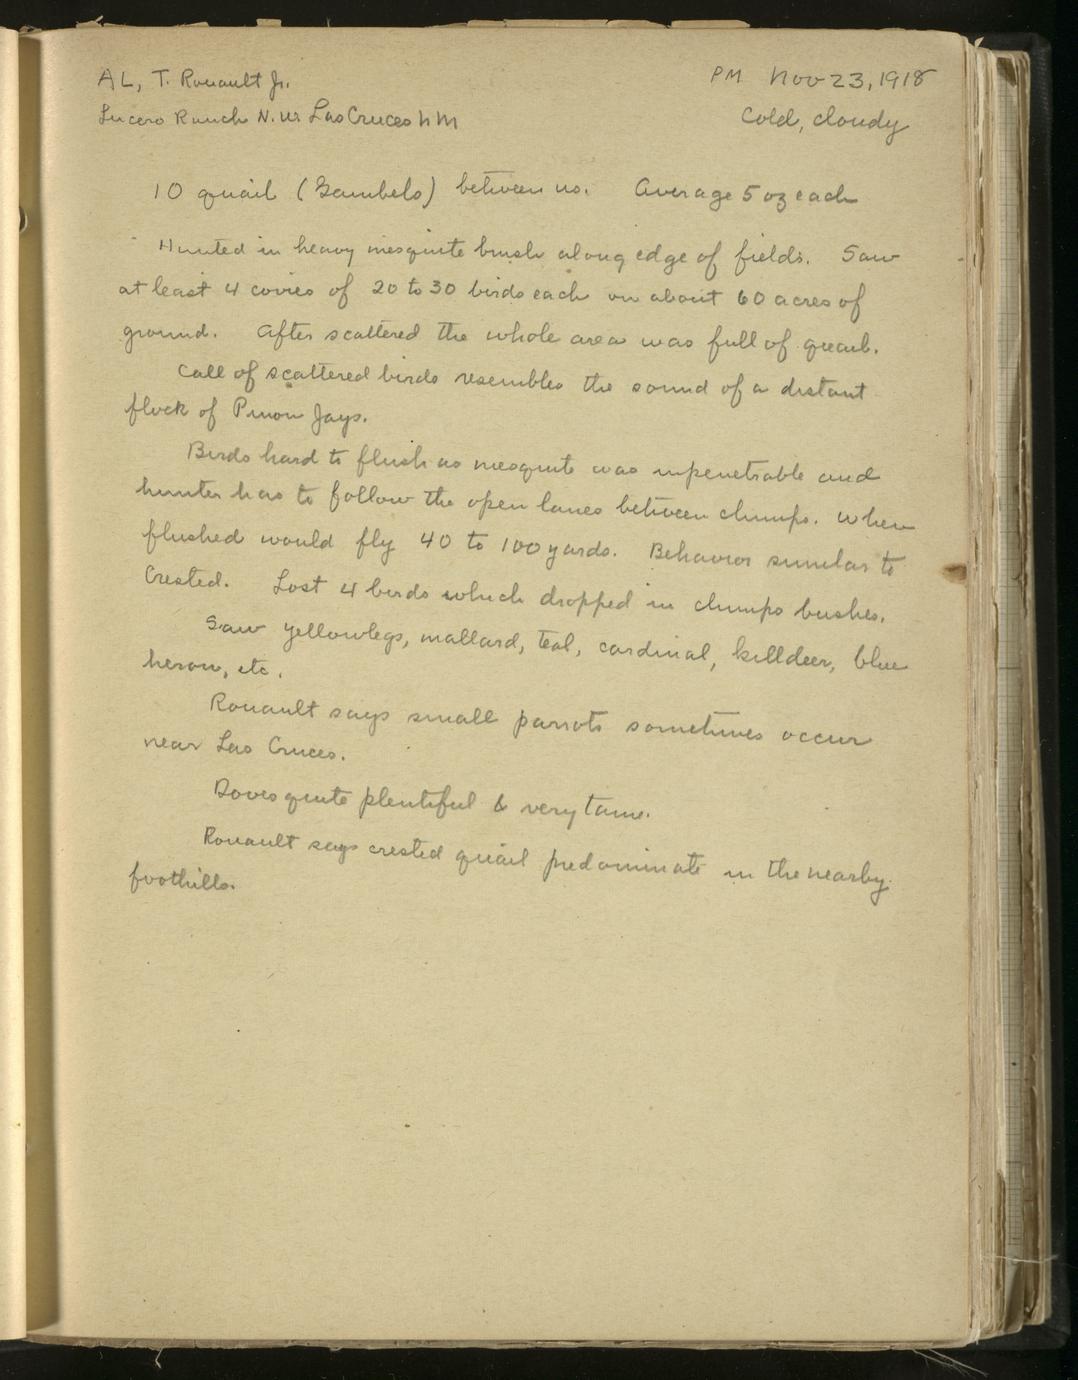 AL, T. Rouault Jr.
PM Nov 23, 1918
Lucero Ranch N.W. Las Cruces NM
Cold, cloudy
10 quail (Gambels) between us. Average 5 oz each
Hunted in heavy mesquite brush along edge of fields. Saw
at least 4 covies of 20 to 30 birds each on about 60 acres of
ground. After scattered the whole area was full of quail.
Call of scattered birds resembles the sound of a distant
flock of Pinon Jays.
Birds hard to flush as mesquite was inpenetrable and
hunter has to follow the open lanes between clumps. When
flushed would fly 40 to 100 yards. Behavior similar to
Crested. Lost 4 birds which dropped in clumps bushes.
Saw yellowlegs, mallard, teal, cardinal, killdeer, blue
heron, etc.
Rouault says small parrots sometimes occur
near Las Cruces.
Doves quite plentiful & very tame.
Rouault says crested quail predominate in the nearby
foothills.